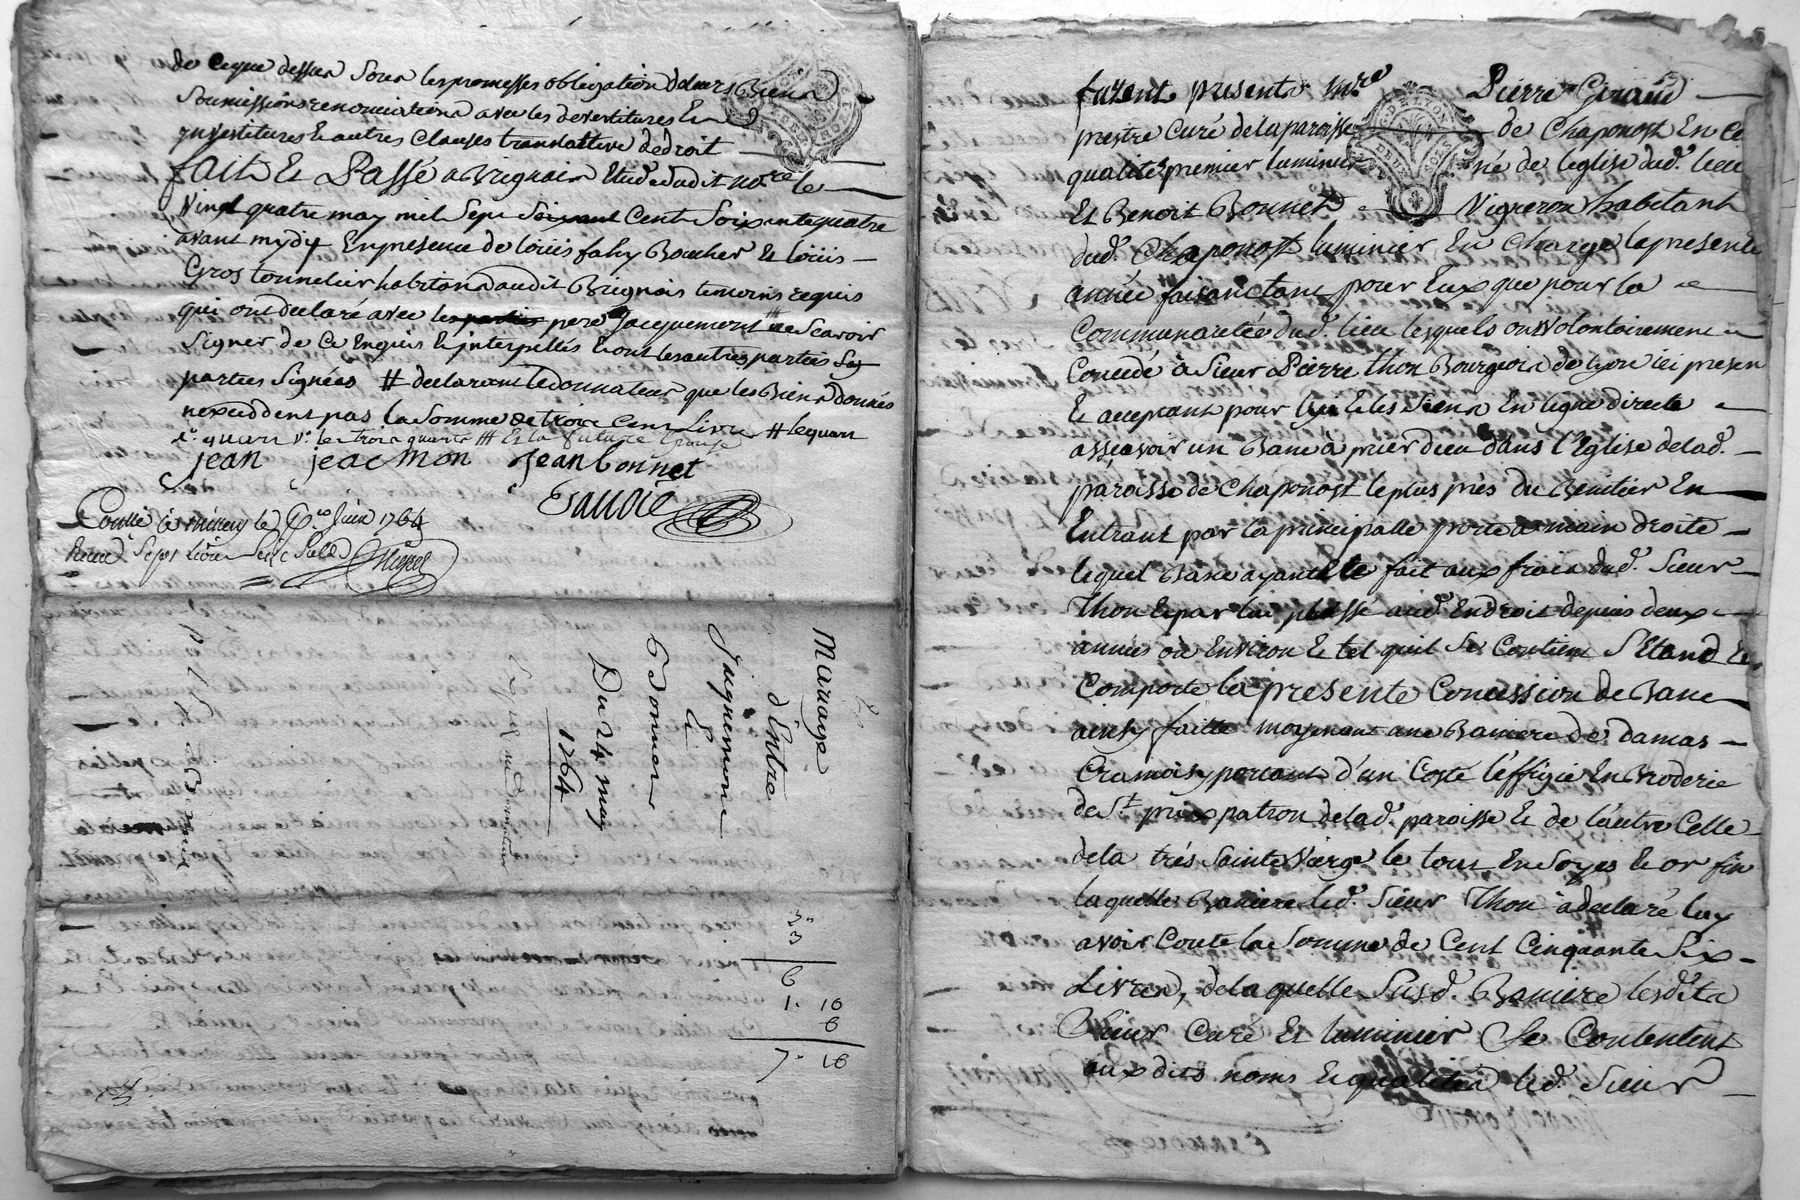 de ceque dessus sous les promesses obligation de leurs Biens
soumissions renonciations avec les devestitures &
jnvestitures & autres clauses translative de droit
fait & Passé a Brignais Etude dudit no.re le
Vingt quatre may mil Sept Soixant Cent Soixante quatre
avant mydy En presence de Loüis fahy Boucher & Loüis
Gros tonnelier habitans audit Brignais temoins requis
qui ont declaré avec les parties pere Jacquemont ne Scavoir
Signer de ce Enquis & jnterpellés & ont les autres parties Sig
parties Signées # declarant le donnateur que les Biens donnés
nexceddent pas la Somme de trois Cent Livres # lequart
trois quarts # & la future Epouse
jean jeacmon jean bonnet
Conllé à le Juin 1764
Receu Sept Livres Seize Sols
Mariage
d'Entre
Jaquemont
&
Bonnet
Du 24 may
1764
3
3
6
1. 10
6
7. 16
furent presents mre Pierre Giraud
prestre Curé de la paroisse de Chaponost En ce
qualité premier luminier né de leglise dud. lieu
Et Benoit Bonnet Vigneron habitant
dud. Chaponost luminier En Charge la presente
année faisant tant pour Eux que pour la
Communautée dud. lieu lesquels ont Volontairement
Concedé à Sieur Pierre Thon Bourgeois de Lyon ici presen
& acceptant pour luy & les Siens En ligne directe
assçavoir un Banc à prier dieu dans l'Eglise de lad.
paroisse de Chaponost le plus près du Benitier En
Entrant par la principalle porte a main droite
lequel Banc ayant Eté fait aux frais dud. Sieur
Thon & par lui placé aud. Endroit depuis deux
années ou Environ & tel quil Se Contient S'Etend &
Comporte la presente Concession de Banc
ainsy faitte moyenant une Baniere de damas
Cramoisy portant d'un Costé l'effigie En Broderie
de St. prix patron de lad. paroisse & de l'autre Celle
de la trés Sainte Vierge le tout En Soyes & or fin
laquelle Baniere led. Sieur Thon à declaré luy
avoir Couté la Somme de Cent Cinquante Six
Livres, de laquelle Susd. Baniere lesdits
Sieur Curé Et luminier Se Contentent
aux dits noms & qualités led. Sieur